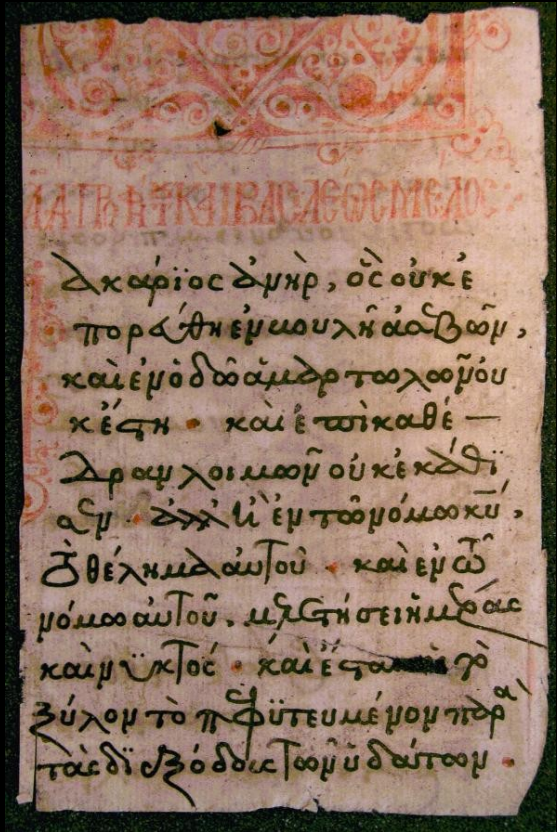 ΚΑΙ ΒΑϹΛΕΩϹ ΜΕΛΟϹ
ακάριος ἀνὴρ, ὃς οὐκ ἐ
πορεύθη ἐν βουλῆ ἀσεβῶν,
καὶ ἐν ὁδῶ ἁμαρτωλῶν οὐ
κ ἔστη · καὶ ἐπὶ καθέ —
δραν λοιμῶν οὐκ ἐκάθϊ
σεν · ἀλλ' ἢ ἐν τῶ νόμω κ̅υ̅,
τὸ θέλημα αὐτοῦ · καὶ ἐν τῶ
νόμω αὐτοῦ, μελετήσει ἡμέρας
καὶ νϋκτός · καὶ ἔσται τὸ
ξύλον τὸ πεφϋτευμένον παρὰ
τὰς δϊεξόδους τῶν ὑδάτων ·